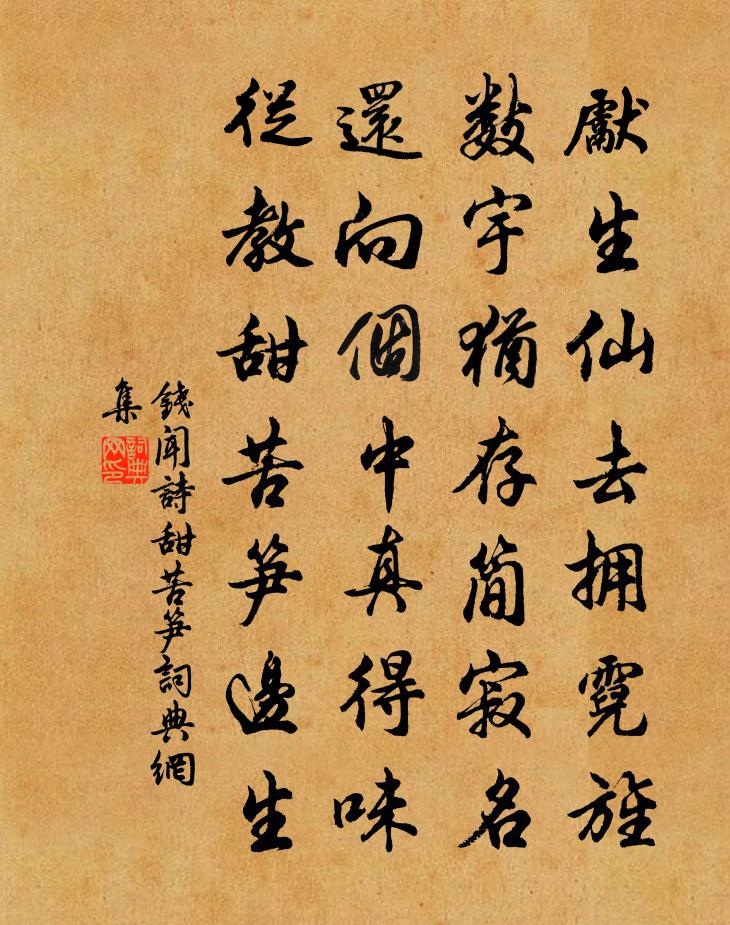 獻生仙去拥霓旌
數宇猶存簡寂名
還向個中真得味
從教甜苦笋邊生
錢聞詩甜苦笋詞典網
集
詞典网印